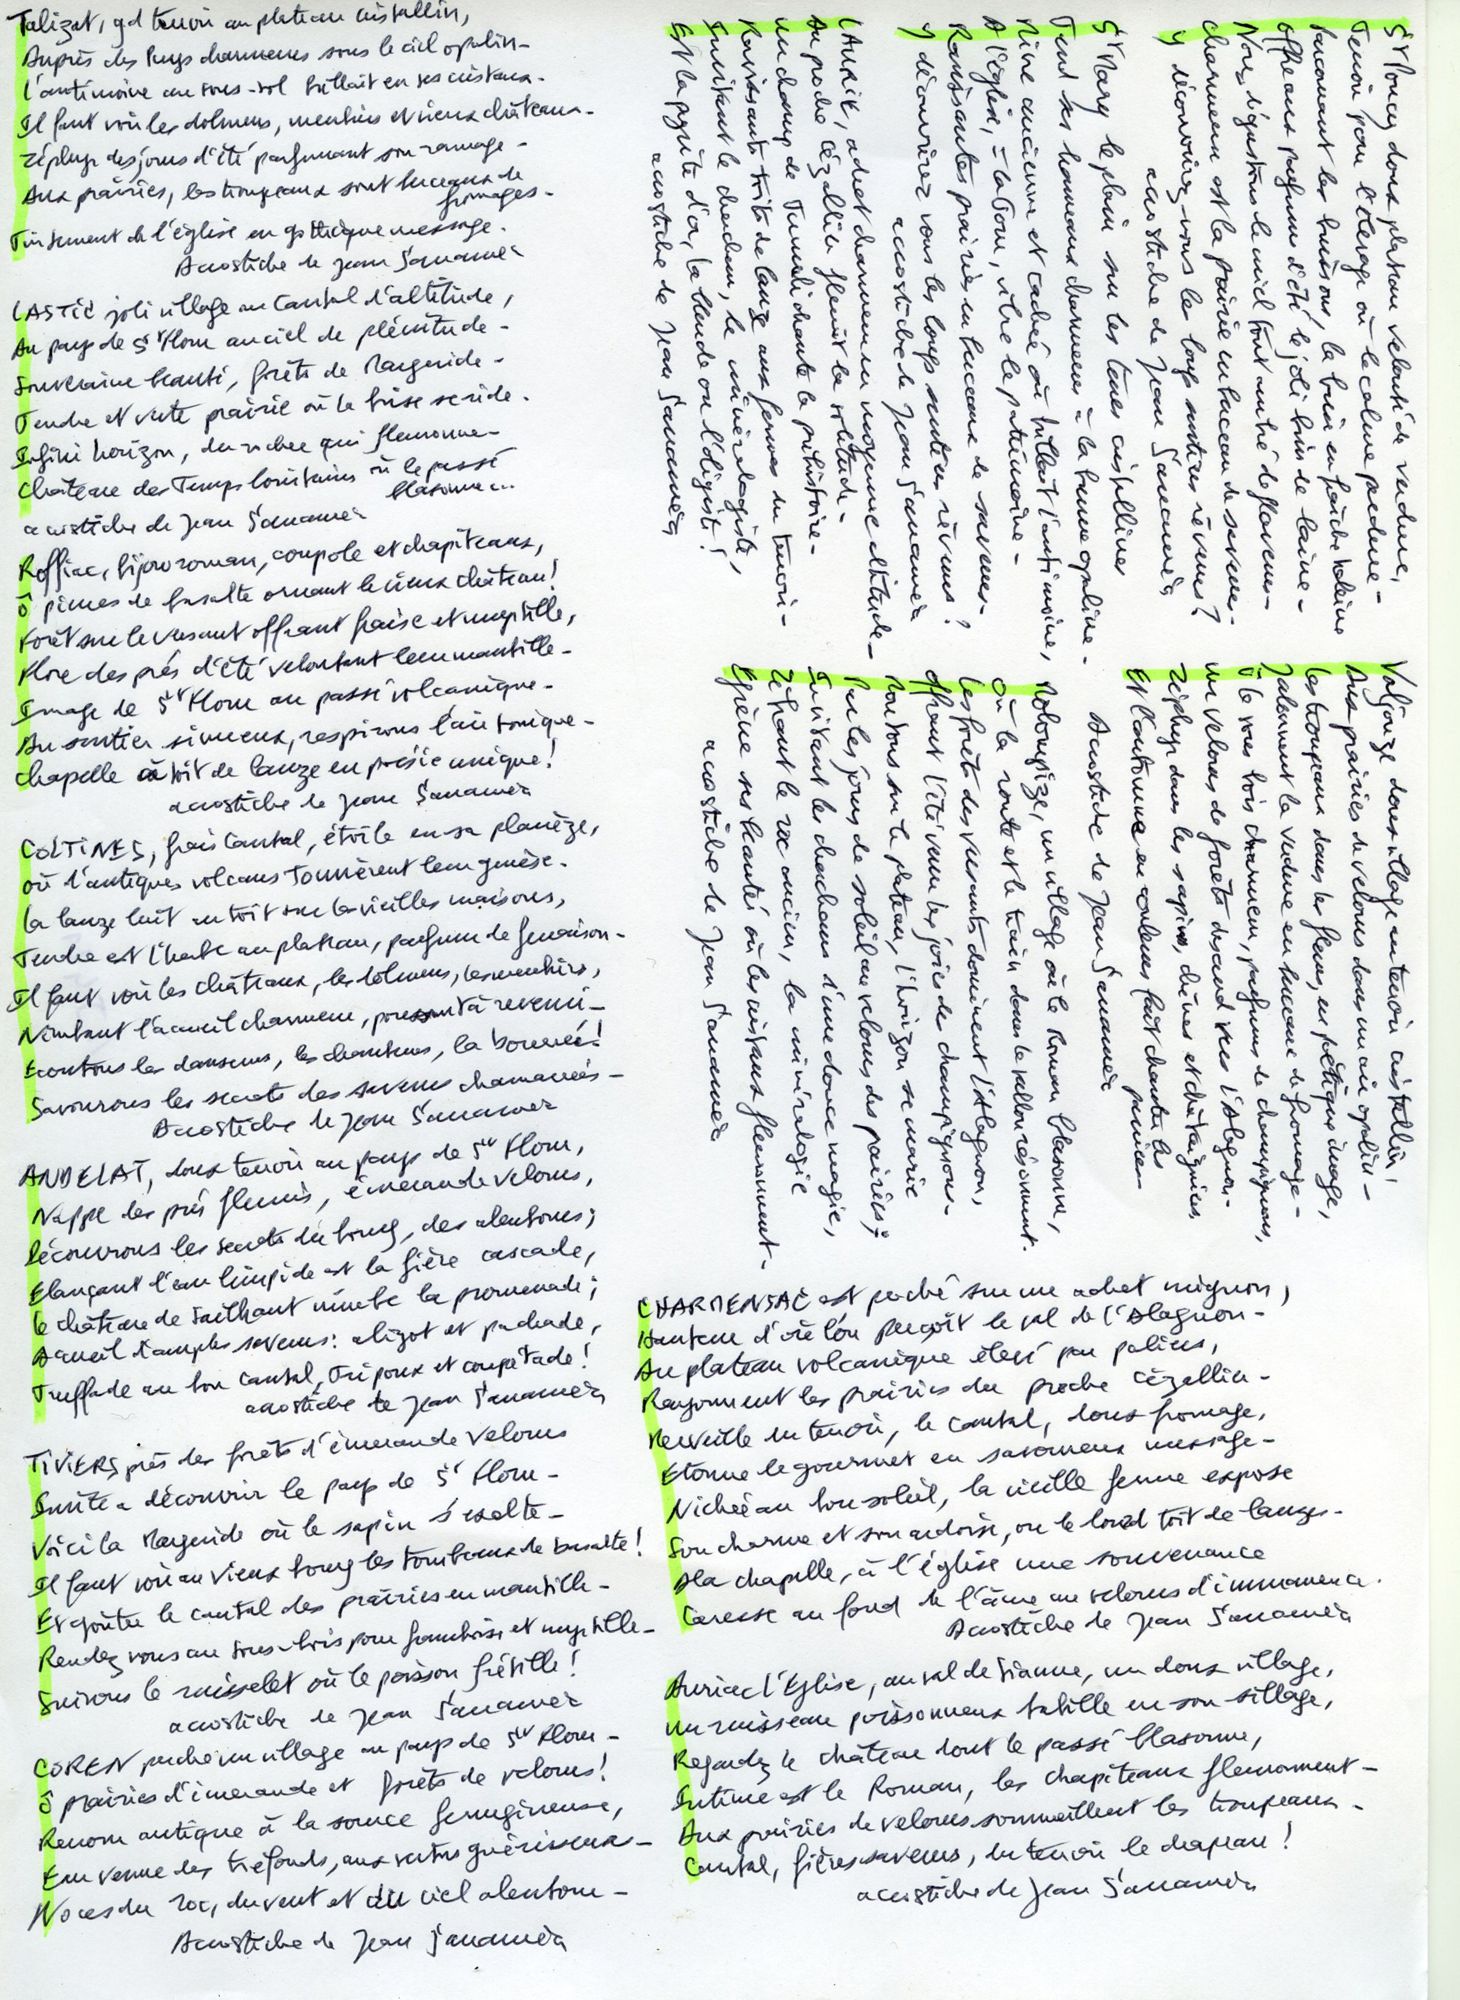 Talizat, gd terroir au plateau cristallin,
Auprès des Puys charmeurs sous le ciel opalin -
L'antimoine au sous-sol brillait en ses cristaux -
Il faut voir les dolmens, menhirs et vieux châteaux -
Zéphyr des jours d'été parfumant son ramage -
Aux prairies, les troupeaux sont berceaux de
fromages -
Tintement de l'église en gothique message.
Acrostiche de Jean Sanamèr
LASTIC joli village au Cantal d'altitude,
Au pays de St Flour au ciel de plénitude -
Souveraine beauté, forêts de Margeride -
Tendre et verte prairie où la brise se ride -
Infini horizon, du rocher qui fleuronne -
Château des Temps lointains où le passé
blasonne...
acrostiche de Jean Sanamèr
Roffiac, bijou roman, coupole et chapiteaux,
Ô pierres de basalte ornant le vieux château!
Forêt sur le versant offrant fraise et myrtille,
Flore des prés d'été veloutant leur mantille -
Image de St Flour au passé volcanique -
Au sentier sinueux, respirons l'air tonique -
Chapelle à toit de lauze en poésie unique!
acrostiche de Jean Sanamèr
COLTINES, frais Cantal, étoile en sa planèze,
Où d'antiques volcans tournèrent leur genèse -
La lauze luit au toit sur les vieilles maisons,
Tendre est l'herbe au plateau, parfum de fenaison -
Il faut voir les châteaux, les dolmens, les menhirs,
Nimbant l'accueil charmeur, pour revenir -
Ecoutons les danseurs, les chanteurs, la bourrée!
Savourons les secrets des saveurs chamarrées -
Acrostiche de Jean Sanamèr
ANDELAT, doux terroir au pays de St Flour,
Nappe des prés fleuris, émeraude velours,
Découvrons les secrets du bourg, des alentours;
Elançant l'eau limpide est la fière cascade,
Le château de Sailhant nimbe la promenade;
Accueil d'amples saveurs: aligot et pachade,
Truffade au bon cantal, Tripoux et coupétade!
acrostiche de Jean Sanamèr
TIVIERS près des forêts d'émeraude velours
Invite à découvrir le pays de St Flour -
Voici la Margeride où le sapin s'exalte -
Il faut voir au vieux bourg les tombeaux de basalte!
Et goûter le cantal des prairies en mantille -
Rendez vous au sous-bois pour framboise et myrtille -
Suivons le ruisselet où le poisson frétille!
acrostiche de Jean Sanamèr
COREN perche un village au pays de St Flour -
Ô prairies d'émeraude et forêts de velours!
Renom antique à la source ferrugineuse,
Eau venue des tréfonds, aux vertus guérisseuses -
Noces du roc, du vent et du ciel alentour -
Acrostiche de Jean Sanamèr
St Poncy doux plateau velouté de verdure,
Terroir pour l'élevage où le calme perdure -
Parcourant les buissons, la brise en fraîche haleine
Offre aux parfums d'été le joli brin de laine -
Nous dégustons le miel tout ambré de flaveurs -
Charmeur est la prairie en berceau de saveurs -
Y découvrirez-vous les loups sentiers rêveurs?
acrostiche de Jean Sanamèr
St Mary le plain sur les terres cristallines
Tend ses hameaux charmeurs à la brume opaline -
Mine ancienne et cachée où brillait l'antimoine,
A l'église, la Tour, vibre le patrimoine -
Ravissantes prairies en berceaux de saveurs -
Y découvrirez vous les longs sentiers rêveurs?
acrostiche de Jean Sanamèr
LAURIE, adret charmeur en moyenne altitude -
Au proche Cézallier fleurit la solitude -
Un champ de Tumuli chante la préhistoire -
Ravissants toits de lauze aux fermes du terroir -
Invitant le chercheur, le minéralogiste,
Et la pyrite d'or, la blende on l'déguste!
acrostiche de Jean Sanamèr
Valjouze doux village au terroir cristallin,
Aux prairies de velours dans un air opalin -
Les troupeaux dans les fleurs, en poétique image,
Jalonnent la verdure en berceau de fromage -
Ô le sous bois charmeur, parfums de champignons,
Un velours de forêts descend vers l'Alagnon -
Zéphyr dans les sapins, chênes et châtaigniers,
Et l'automne en couleurs fait chanter les
pruniers -
Acrostiche de Jean Sanamèr
Molompize, un village où le Roman blasonne,
Où la route et le train dans le vallon résonnent.
Les forêts des versants dominent l'Alagnon,
Offrant l'été venu les joies de champignons -
Montons sur le plateau, l'horizon se marie
Par les jours de soleil au velours des prairies;
Invitant les chercheurs d'une douce magie,
Zébrant le roc ancien, la minéralogie
Egrène ses beautés où les cristaux fleuronnent -
acrostiche de Jean Sanamèr
CHARMENSAC est perché sur un adret mignon,
Hauteur d'où l'on perçoit le val de l'Alagnon -
Au plateau volcanique élevé par paliers,
Rayonnent les prairies du proche Cézallier -
Merveille du terroir, le cantal, doux fromage,
Etonne le gourmet en savoureux message -
Nichée au bon soleil, la vieille ferme expose
Son charme et son ardoise, ou le lourd toit de lauzes -
A la chapelle, à l'église une souvenance
Caresse au fond de l'âme au velours d'immanence.
Acrostiche de Jean Sanamèr
Auriac l'Eglise, au val de Sianne, un doux village,
Un ruisseau poissonneux babille en son sillage,
Regardez le château dont le passé blasonne,
Intime est le Roman, les chapiteaux fleuronnent -
Aux prairies de velours sommeillent les troupeaux -
Cantal, fières saveurs, du terroir le chapeau!
acrostiche de Jean Sanamèr